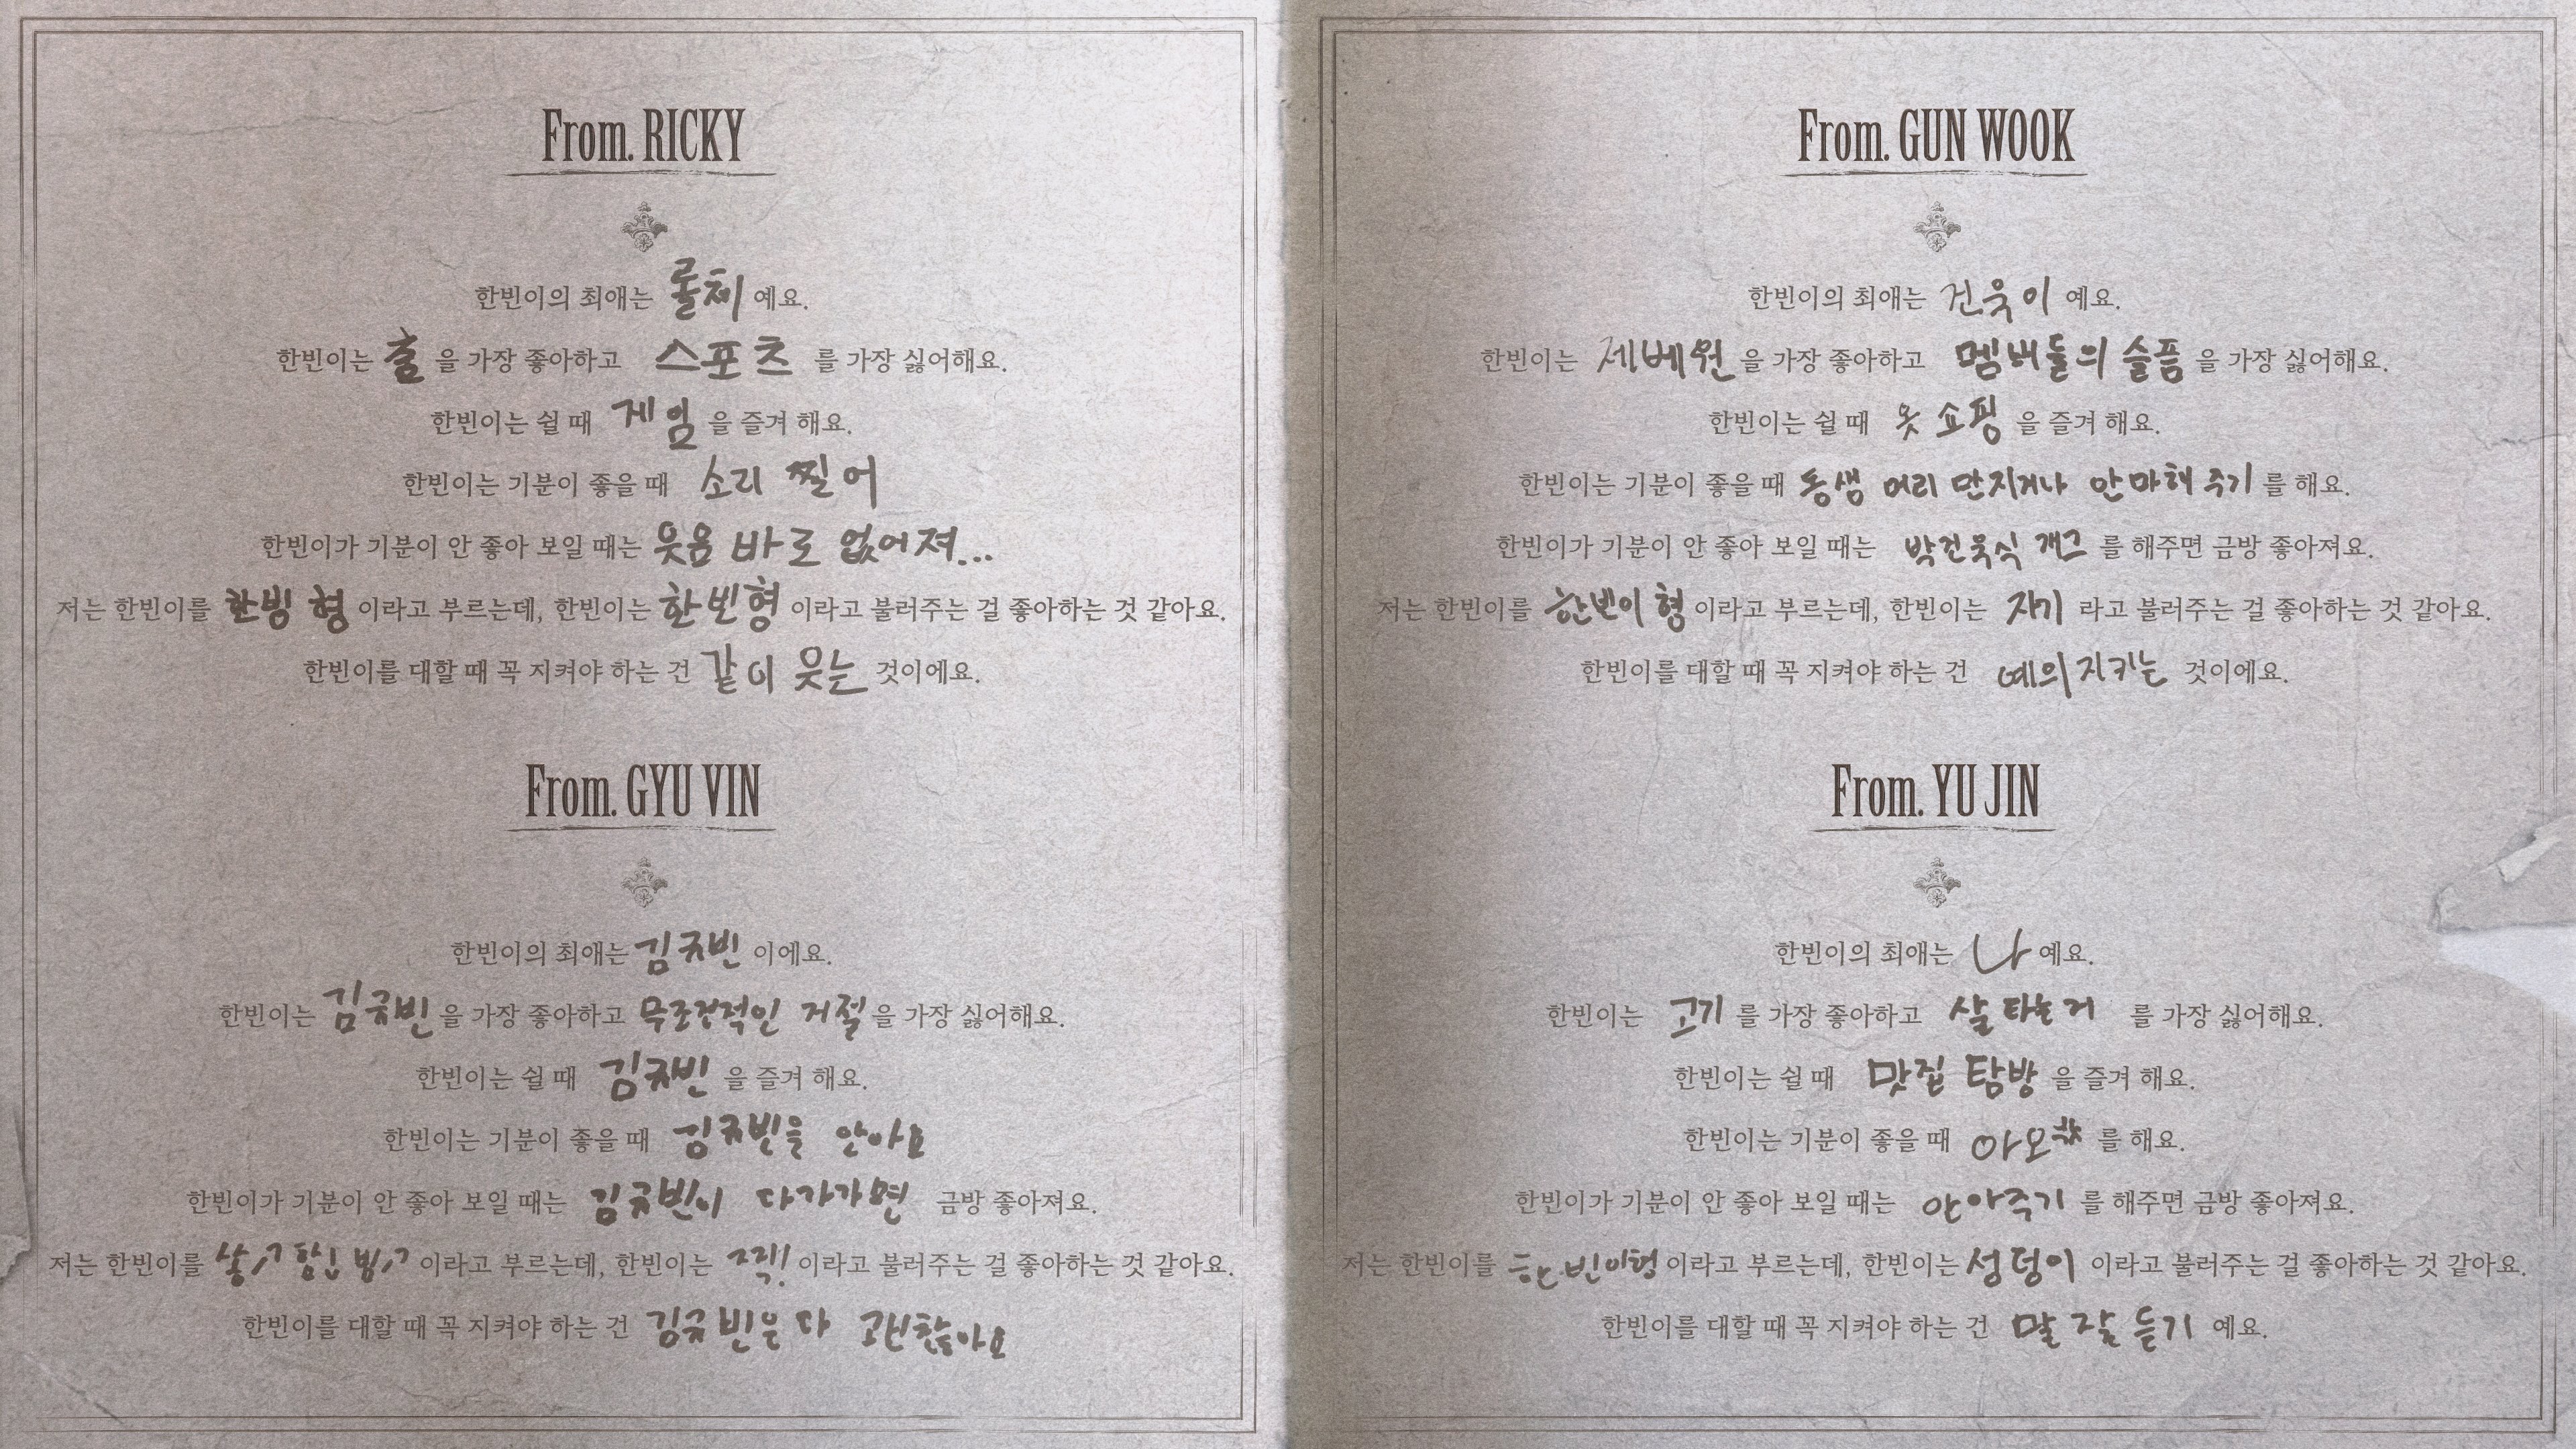 From. RICKY
한빈이의 최애는 롤체 예요.
한빈이는 춤 을 가장 좋아하고 스포츠 를 가장 싫어해요.
한빈이는 쉴 때 게임 을 즐겨 해요.
한빈이는 기분이 좋을 때 소리 찔어
한빈이가 기분이 안 좋아 보일 때는 웃음 바로 없어져...
저는 한빈이를 한빙 형 이라고 부르는데, 한빈이는 한빈형 이라고 불러주는 걸 좋아하는 것 같아요.
한빈이를 대할 때 꼭 지켜야 하는 건 같이 웃는 것이에요.
From. GYU VIN
한빈이의 최애는 김규빈 이에요.
한빈이는 김규빈 을 가장 좋아하고 무조건적인 거절 을 가장 싫어해요.
한빈이는 쉴 때 김규빈 을 즐겨 해요.
한빈이는 기분이 좋을 때 김규빈을 안아요
한빈이가 기분이 안 좋아 보일 때는 김규빈이 다가가면 금방 좋아져요.
저는 한빈이를 이라고 부르는데, 한빈이는 이라고 불러주는 걸 좋아하는 것 같아요.
한빈이를 대할 때 꼭 지켜야 하는 건 김규빈은 다 괜찮아요
From. GUN WOOK
한빈이의 최애는 건욱이 예요.
한빈이는 제베원 을 가장 좋아하고 멤버들의 슬픔 을 가장 싫어해요.
한빈이는 쉴 때 옷 쇼핑 을 즐겨 해요.
한빈이는 기분이 좋을 때 동생 머리 만지거나 안마해 주기 를 해요.
한빈이가 기분이 안 좋아 보일 때는 박건욱식 개그 를 해주면 금방 좋아져요.
저는 한빈이를 한빈이 형 이라고 부르는데, 한빈이는 자기 라고 불러주는 걸 좋아하는 것 같아요.
한빈이를 대할 때 꼭 지켜야 하는 건 예의 지키는 것이에요.
From. YU JIN
한빈이의 최애는 나 예요.
한빈이는 고기 를 가장 좋아하고 살 타는 거 를 가장 싫어해요.
한빈이는 쉴 때 맛집 탐방 을 즐겨 해요.
한빈이는 기분이 좋을 때 를 해요.
한빈이가 기분이 안 좋아 보일 때는 안아주기 를 해주면 금방 좋아져요.
저는 한빈이를 한빈이형 이라고 부르는데, 한빈이는 성덩이 이라고 불러주는 걸 좋아하는 것 같아요.
한빈이를 대할 때 꼭 지켜야 하는 건 말 잘 듣기 예요.